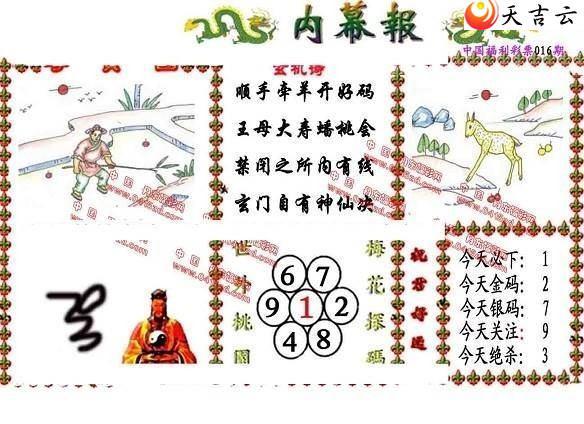 内幕報
天吉云
中国福利彩票016期
玄机诗
顺手牵羊开好码
王母大寿蟠桃会
禁闭之所内有线
玄门自有神仙决
世外桃園
67
912
48
梅花探碼
祝君好运
今天必下: 1
今天金码: 2
今天银码: 7
今天关注: 9
今天绝杀: 3